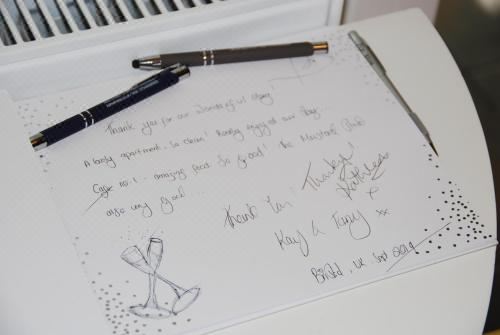 Thank you for our wonderful stay!
A lovely apartment. So clean! Really enjoyed our stay..
Cafe no. 1 - amazing food so good! The Mustard Pad
also very good...
Thank You! Thankyou!
Kathleen
x
Kay & Tony xx
Bristol, UK Sept 2019